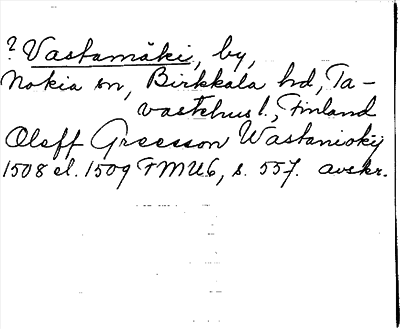 ? Vastamäki, by,
Nokia sn, Birkkala hd, Ta-
vastehus l., Finland
Oleff Greesson Wastanioky
1508 el. 1509 FMU 6, s. 557. avskr.